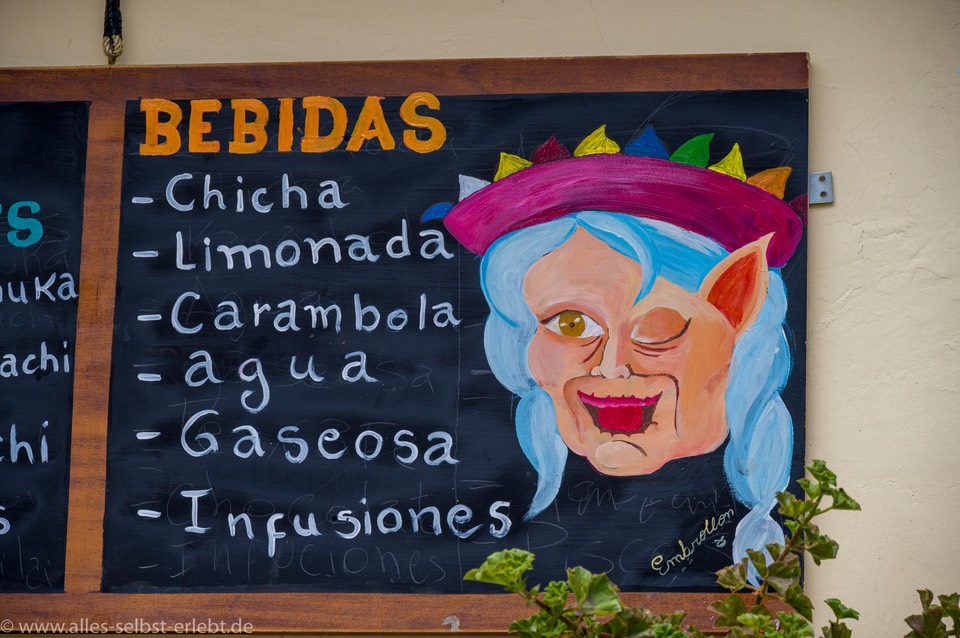 BEBIDAS
- Chicha
- Limonada
- Carambola
- agua
- Gaseosa
- Infusiones
Embrollon
© www.alles-selbst-erlebt.de